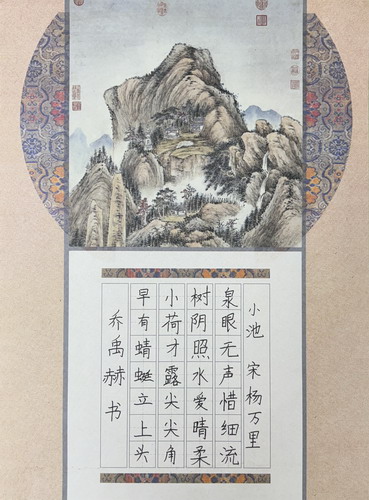 小池 宋 杨万里
泉眼无声惜细流
树阴照水爱晴柔
小荷才露尖尖角
早有蜻蜓立上头
乔禹赫书